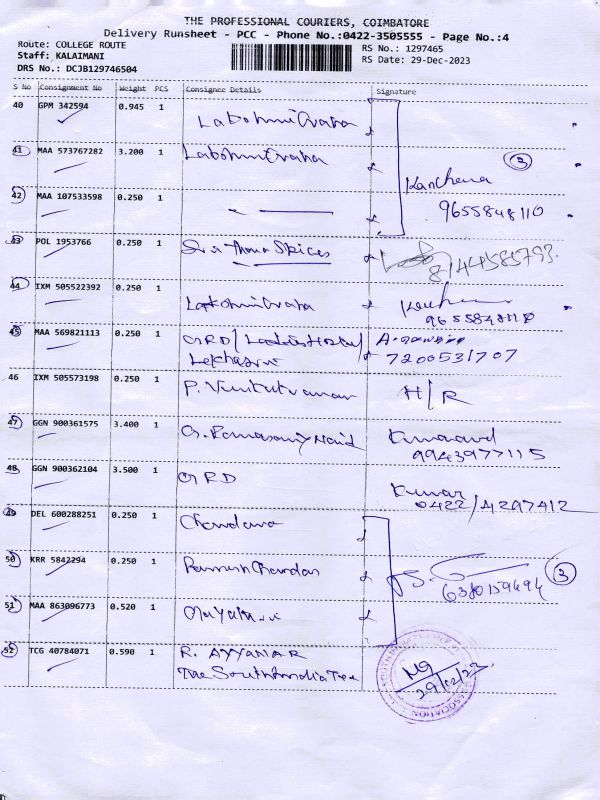 THE PROFESSIONAL COURIERS, COIMBATORE
Delivery Runsheet - PCC - Phone No.:0422-3505555 - Page No.:4
Route: COLLEGE ROUTE
RS No.: 1297465
Staff: KALAIMANI
RS Date: 29-Dec-2023
DRS No.: DCJB129746504
S No Consignment No Weight PCS Consignee Details Signature
40 GPM 342594 0.945 1
41 MAA 573767282 3.200 1
3
Kanchana
42 MAA 107533598 0.250 1
9655848110
43 POL 1953766 0.250 1 Spices
8144585793
44 IXM 505522392 0.250 1
9655848110
45 MAA 569821113 0.250 1 GRD/
7200531707
46 IXM 505573198 0.250 1 P. H/R
47 GGN 900361575 3.400 1 G. Ramasamy Naid
9943977115
48 GGN 900362104 3.500 1 GRD Kumar
0422/4297412
49 DEL 600288251 0.250 1 Chandana
50 KRR 5842294 0.250 1 Ramesh Chandar
6380159694 3
51 MAA 863096773 0.520 1
52 TCG 40784071 0.590 1 R. AYYANAR
The SouthIndia Tex
29/12/23
ASSOCIATION